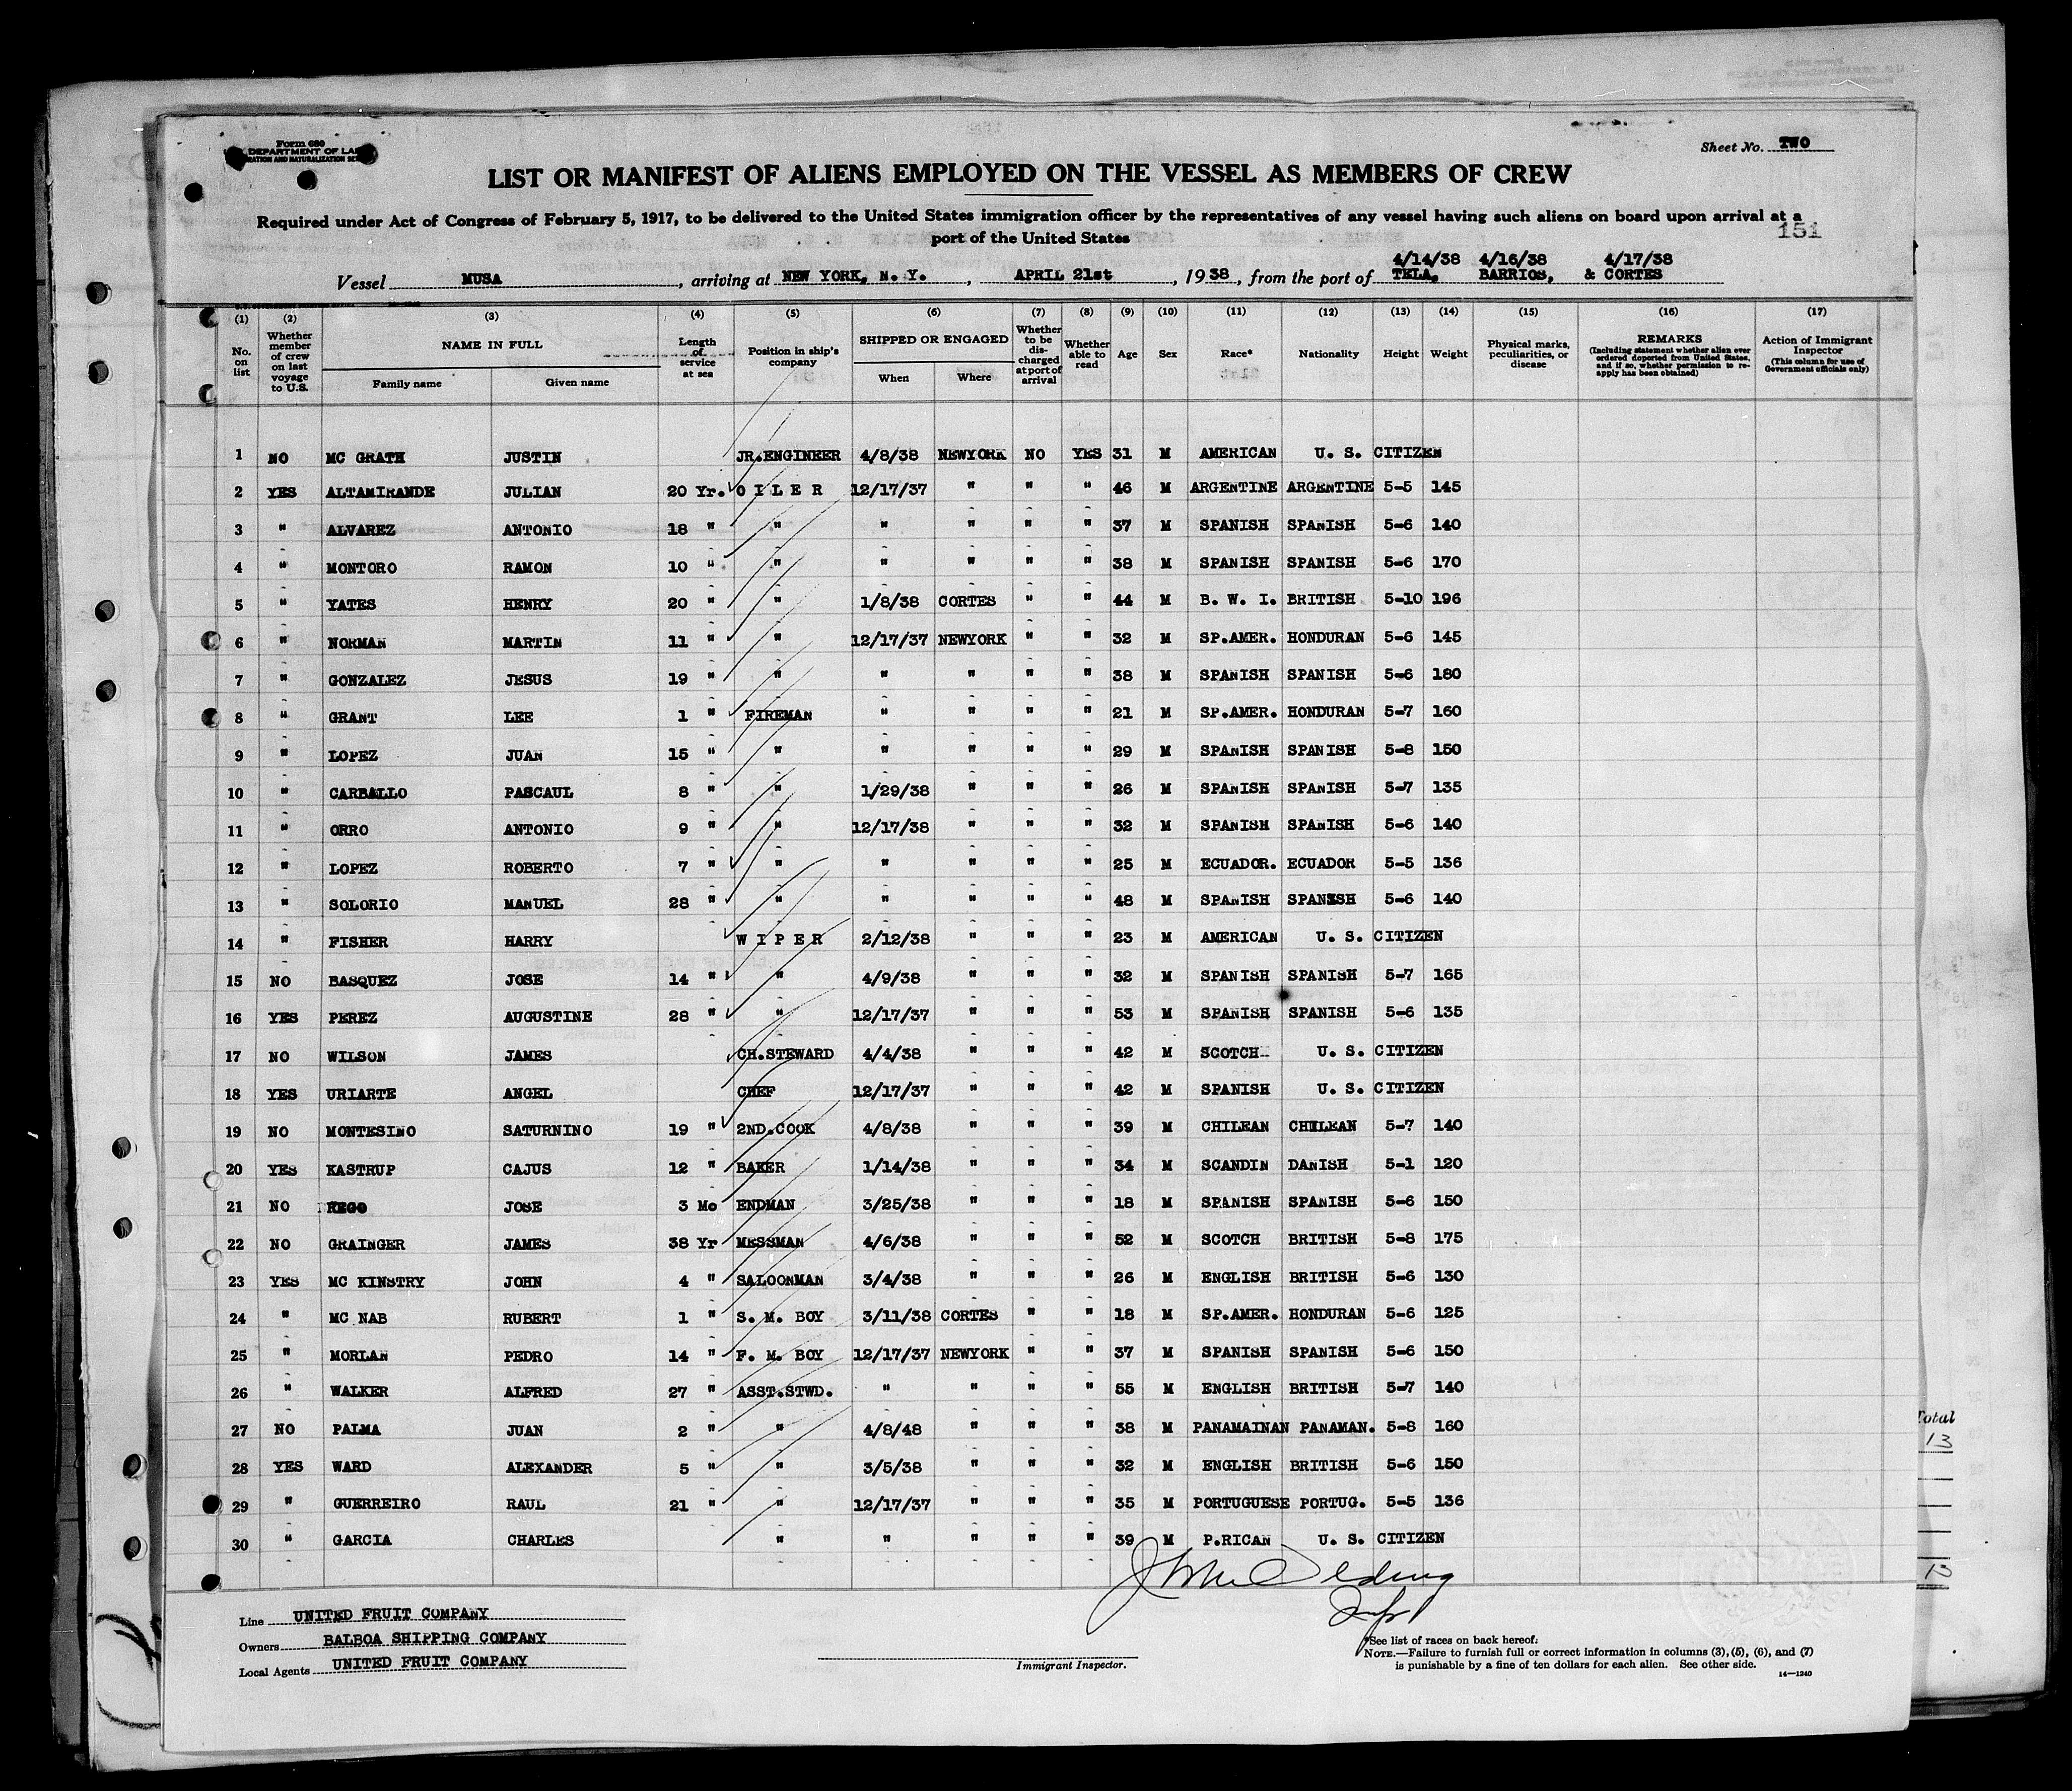 Form 680
DEPARTMENT OF LA
RATION AND NATURALIZATION SE
Sheet No. TWO
LIST OR MANIFEST OF ALIENS EMPLOYED ON THE VESSEL AS MEMBERS OF CREW
Required under Act of Congress of February 5, 1917, to be delivered to the United States immigration officer by the representatives of any vessel having such aliens on board upon arrival at a
port of the United States
151
4/14/38 4/16/38 4/17/38
Vessel MUSA, arriving at NEW YORK, N. Y., APRIL 21st, 1938, from the port of TELA, BARRIOS, & CORTES
(1) (2) (3) (4) (5) (6) (7) (8) (9) (10) (11) (12) (13) (14) (15) (16) (17)
No. on list
Whether member of crew on last voyage to U.S.
NAME IN FULL
Family name Given name
Length of service at sea
Position in ship's company
SHIPPED OR ENGAGED
When Where
Whether to be discharged at port of arrival
Whether able to read
Age
Sex
Race*
Nationality
Height
Weight
Physical marks, peculiarities, or disease
REMARKS
(Including statement whether alien ever ordered deported from United States, and if so, whether permission to reapply has been obtained)
Action of Immigrant Inspector
(This column for use of Government officials only)
1 NO MC GRATH JUSTIN JR.ENGINEER 4/8/38 NEWYORK NO YES 31 M AMERICAN U. S. CITIZEN
2 YES ALTAMIRANDE JULIAN 20 Yr. O I L E R 12/17/37 " " " 46 M ARGENTINE ARGENTINE 5-5 145
3 " ALVAREZ ANTONIO 18 " " " " " " 37 M SPANISH SPANISH 5-6 140
4 " MONTORO RAMON 10 " " " " " " 38 M SPANISH SPANISH 5-6 170
5 " YATES HENRY 20 " " 1/8/38 CORTES " " 44 M B. W. I. BRITISH 5-10 196
6 " NORMAN MARTIN 11 " " 12/17/37 NEWYORK " " 32 M SP.AMER. HONDURAN 5-6 145
7 " GONZALEZ JESUS 19 " " " " " " 38 M SPANISH SPANISH 5-6 180
8 " GRANT LEE 1 " FIREMAN " " " " 21 M SP.AMER. HONDURAN 5-7 160
9 " LOPEZ JUAN 15 " " " " " " 29 M SPANISH SPANISH 5-8 150
10 " CARBALLO PASCAUL 8 " " 1/29/38 " " " 26 M SPANISH SPANISH 5-7 135
11 " ORRO ANTONIO 9 " " 12/17/38 " " " 32 M SPANISH SPANISH 5-6 140
12 " LOPEZ ROBERTO 7 " " " " " " 25 M ECUADOR. ECUADOR 5-5 136
13 " SOLORIO MANUEL 28 " " " " " " 48 M SPANISH SPANISH 5-6 140
14 " FISHER HARRY W I P E R 2/12/38 " " " 23 M AMERICAN U. S. CITIZEN
15 NO BASQUEZ JOSE 14 " " 4/9/38 " " " 32 M SPANISH SPANISH 5-7 165
16 YES PEREZ AUGUSTINE 28 " " 12/17/37 " " " 53 M SPANISH SPANISH 5-6 135
17 NO WILSON JAMES CH.STEWARD 4/4/38 " " " 42 M SCOTCH U. S. CITIZEN
18 YES URIARTE ANGEL CHEF 12/17/37 " " " 42 M SPANISH U. S. CITIZEN
19 NO MONTESINO SATURNINO 19 " 2ND.COOK 4/8/38 " " " 39 M CHILEAN CHILEAN 5-7 140
20 YES KASTRUP CAJUS 12 " BAKER 1/14/38 " " " 34 M SCANDIN DANISH 5-1 120
21 NO REGO JOSE 3 Mo ENDMAN 3/25/38 " " " 18 M SPANISH SPANISH 5-6 150
22 NO GRAINGER JAMES 38 Yr MESSMAN 4/6/38 " " " 52 M SCOTCH BRITISH 5-8 175
23 YES MC KINSTRY JOHN 4 " SALOONMAN 3/4/38 " " " 26 M ENGLISH BRITISH 5-6 130
24 " MC NAB RUBERT 1 " S. M. BOY 3/11/38 CORTES " " 18 M SP.AMER. HONDURAN 5-6 125
25 " MORLAN PEDRO 14 " F. M. BOY 12/17/37 NEWYORK " " 37 M SPANISH SPANISH 5-6 150
26 " WALKER ALFRED 27 " ASST.STWD. " " " " 55 M ENGLISH BRITISH 5-7 140
27 NO PALMA JUAN 2 " " 4/8/48 " " " 38 M PANAMAINAN PANAMAN. 5-8 160
28 YES WARD ALEXANDER 5 " " 3/5/38 " " " 32 M ENGLISH BRITISH 5-6 150
29 " GUERREIRO RAUL 21 " " 12/17/37 " " " 35 M PORTUGUESE PORTUG. 5-5 136
30 " GARCIA CHARLES " " " " " 39 M P.RICAN U. S. CITIZEN
Total
13
13
Line UNITED FRUIT COMPANY
Owners BALBOA SHIPPING COMPANY
Local Agents UNITED FRUIT COMPANY
Immigrant Inspector.
*See list of races on back hereof.
NOTE.—Failure to furnish full or correct information in columns (3), (5), (6), and (7)
is punishable by a fine of ten dollars for each alien. See other side.
14—1240